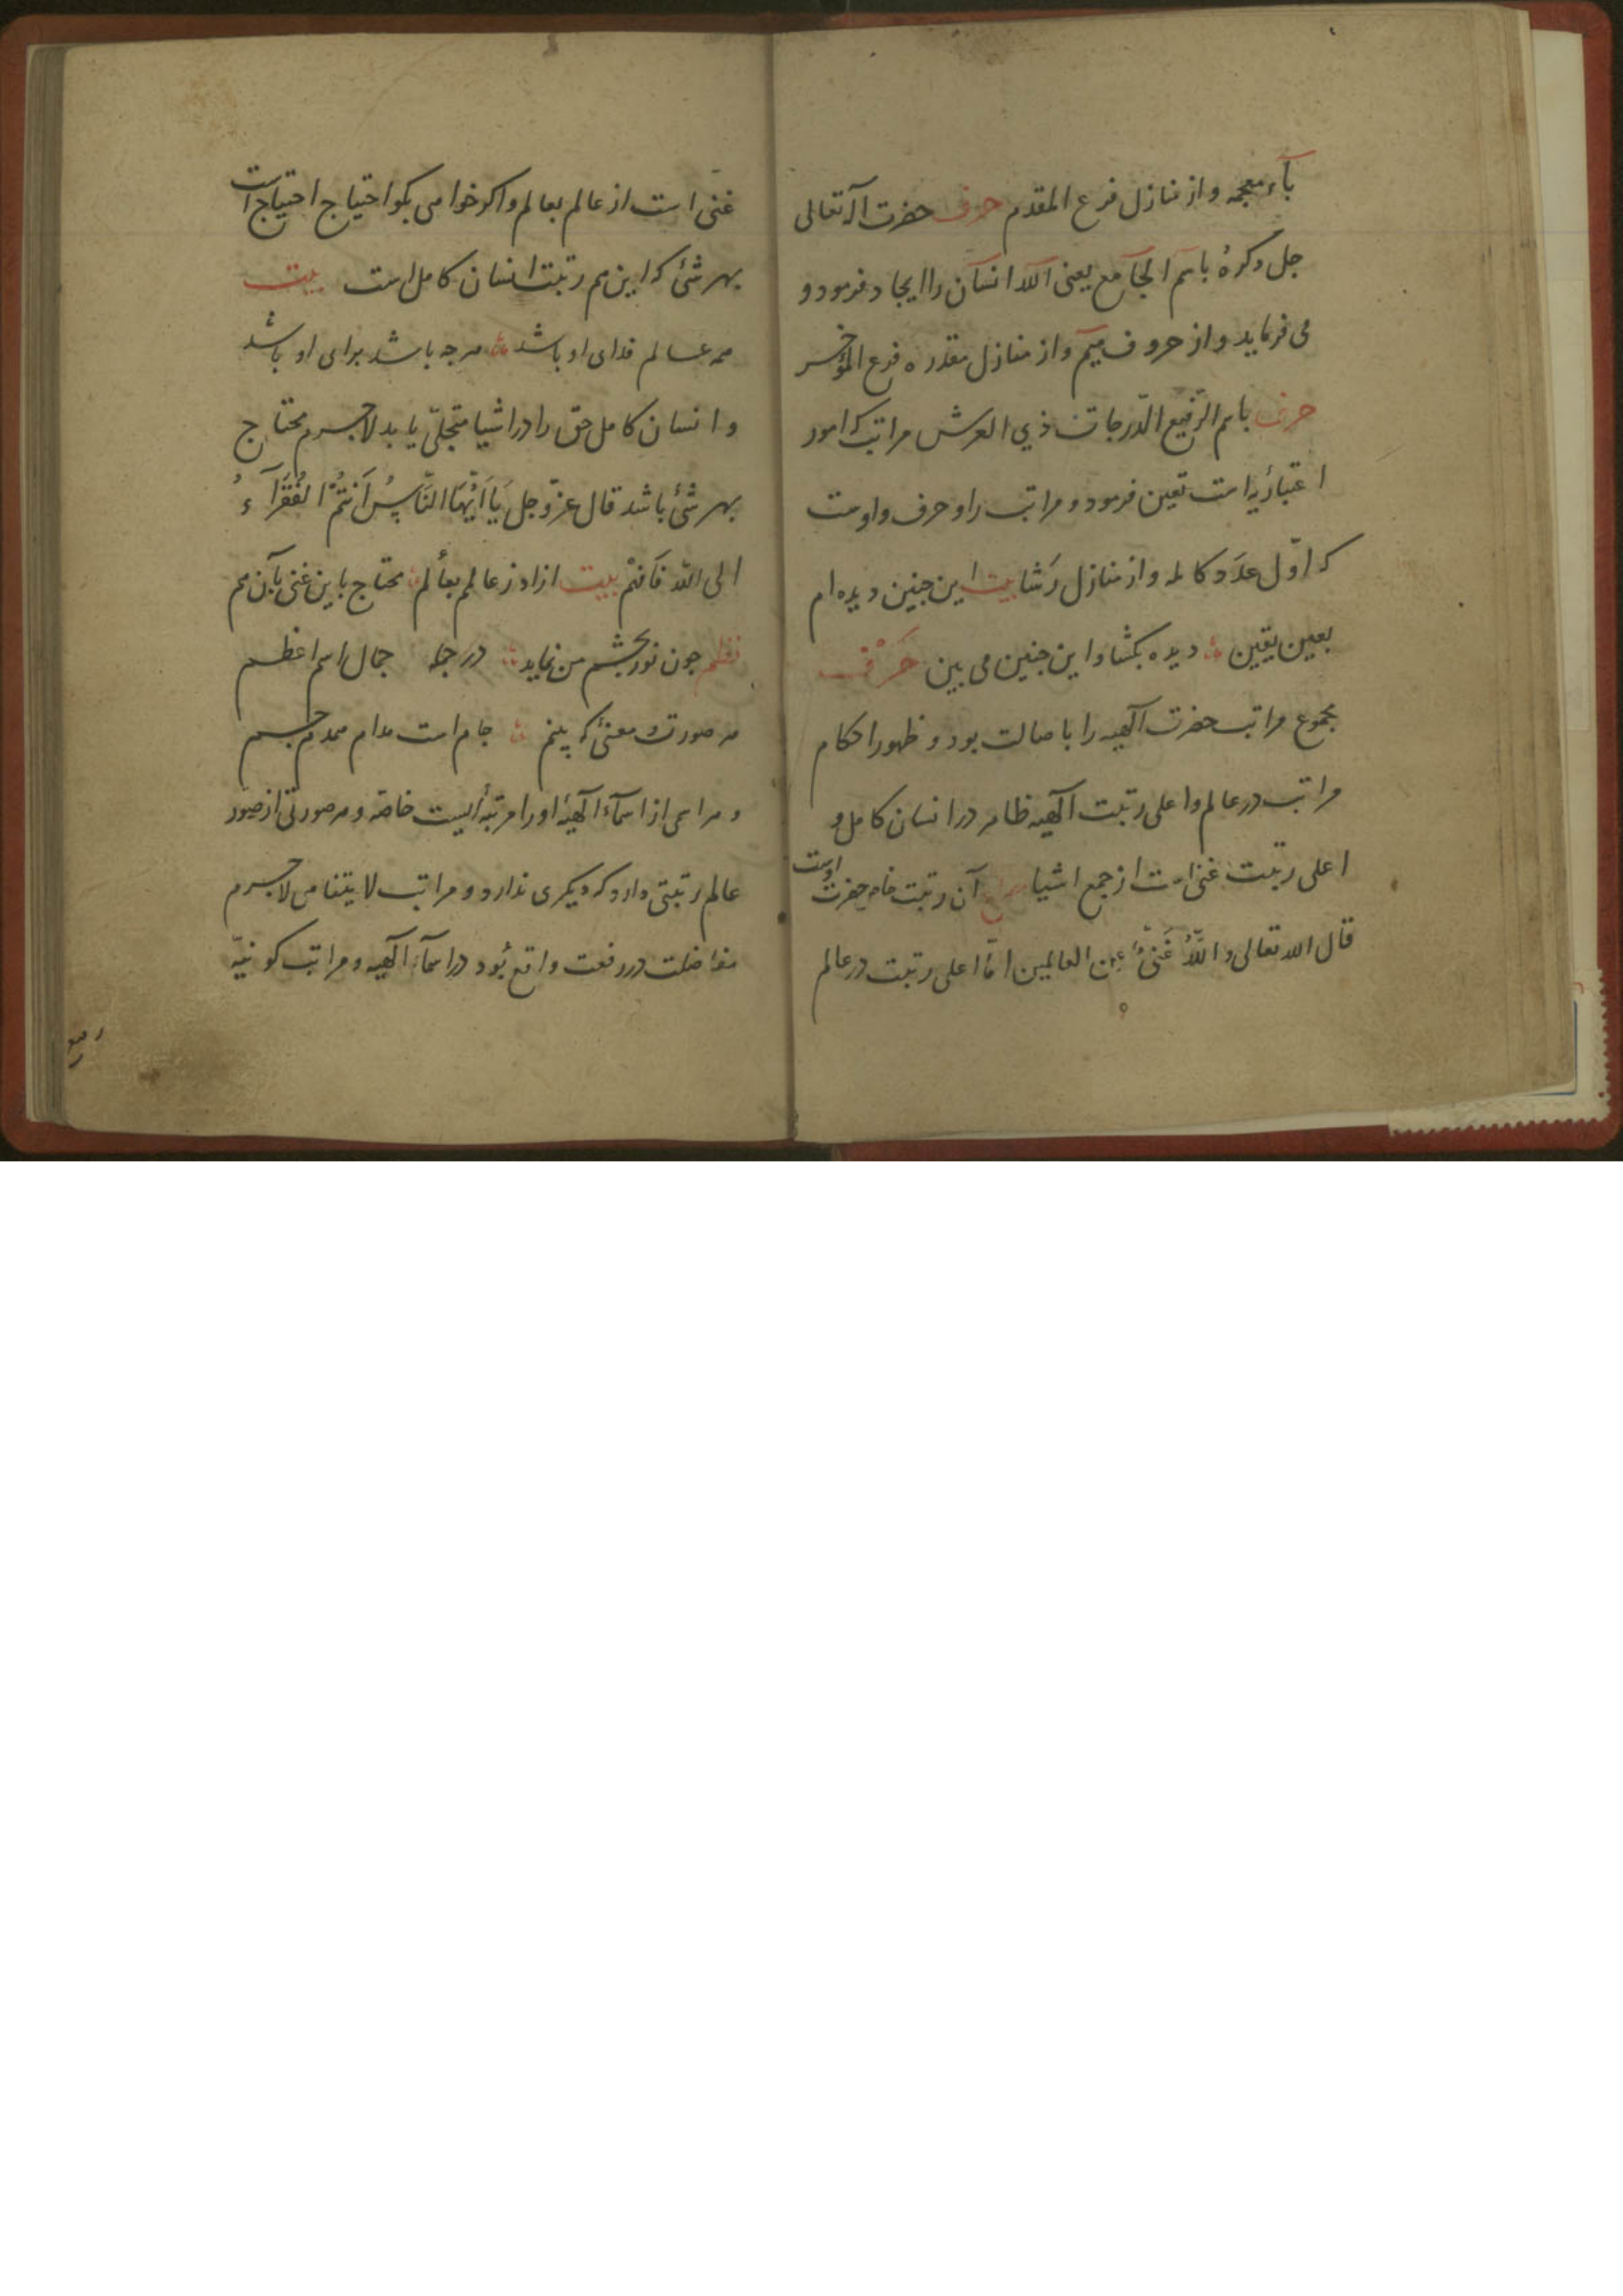 بآء معجمه و از منازل فرع المقدم حرف حضرت اله تعالی
جل ذکره باسم الجامع یعنی الله انسان را ایجاد فرمود و
می فرماید و از حروف میم و از منازل مقدره فرع المؤخر
حرف باسم الرفیع الدّرجات ذی العرش مراتب که امور
اعتباریه است تعین فرمود و مراتب را و حرف واوست
که اوّل عدد کامله و از منازل رشا بیت این جنین دیده ام
بعین یقین دیده بکشا و این جنین می بین حَرْف
مجموع مراتب حضرت الهیه را باصالت بود و ظهور احکام
مراتب در عالم و اعلی رتبت الهیه ظاهر در انسان کامل و
اعلی رتبت غنی است از جمع اشیا آن رتبت خاصه حضرت اوست
قال الله تعالی و اللّهُ غَنیٌّ عن العالمین امّا اعلی رتبت در عالم
غنی است از عالم بعالم و اکر خواهی بکو احتیاج احتیاج است
بهر شئ که این هم رتبت انسان کامل است بیت
همه عالم فدای او باشد هر جه باشد برای او باشد
و انسان کامل حق را در اشیا متجلّی یابد لاجرم محتاج
بهر شئ باشد قال عزّ و جل یَا اَیُّهَا النَّاسُ اَنتُمُ الفُقَرَآءُ
الی اللّه فافهم بیت ازاد ز عالم بعالم محتاج باین غنی بآن هم
نظم جون نور بچشم من نماید در جمله جمال اسم اعظم
هر صورت و معنئ که بینم جام است مدام همدم جم
و هر اسمی از اسمآء الهیّه او را مرتبه ایست خاصه و هر صورتی از صور
عالم رتبتی دارد که دیکری ندارد و مراتب لا یتناهی لاجرم
مفاضلت در رفعت واقع بُود در اسمآء الهیه و مراتب کونیّه